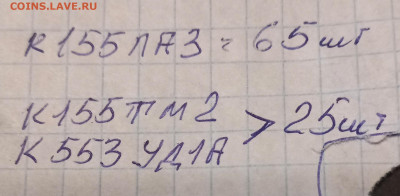 COINS.LAVE.RU
К155ЛА3 = 65шт
К155ТМ2
К553УД1А > 25шт